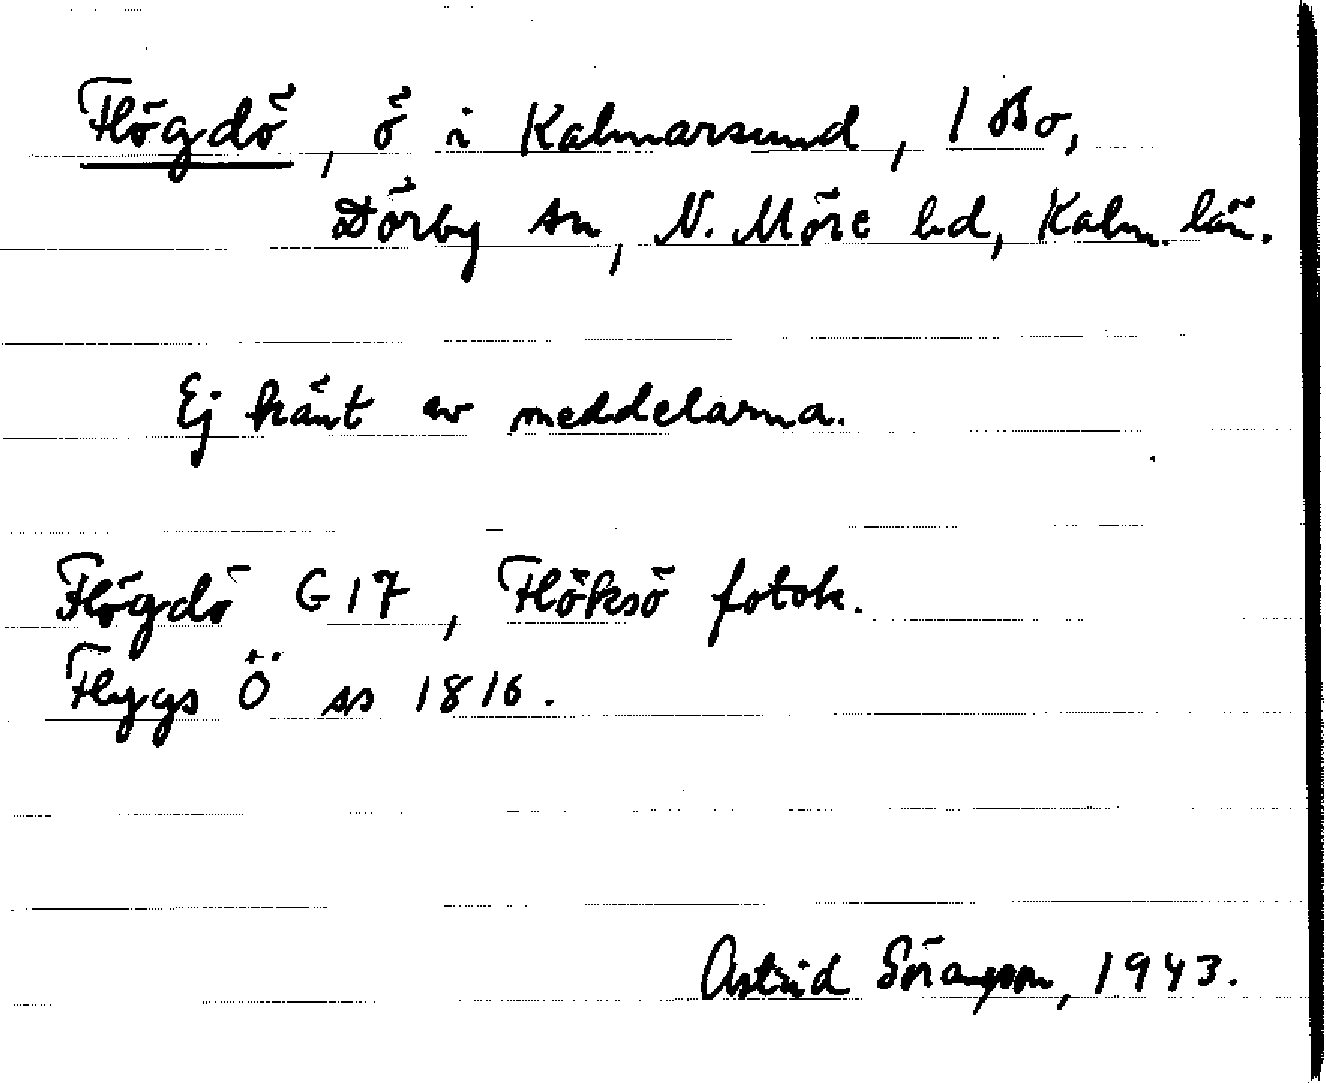 Flögdö, ö i Kalmarsund, 1 Bo,
Dörby sn, N. Möre hd, Kalm. län.
Ej känt av meddelarna.
Flögdö G 17, Flöksö fotok.
Flygs Ö ss 1816.
Astrid Söranson, 1943.